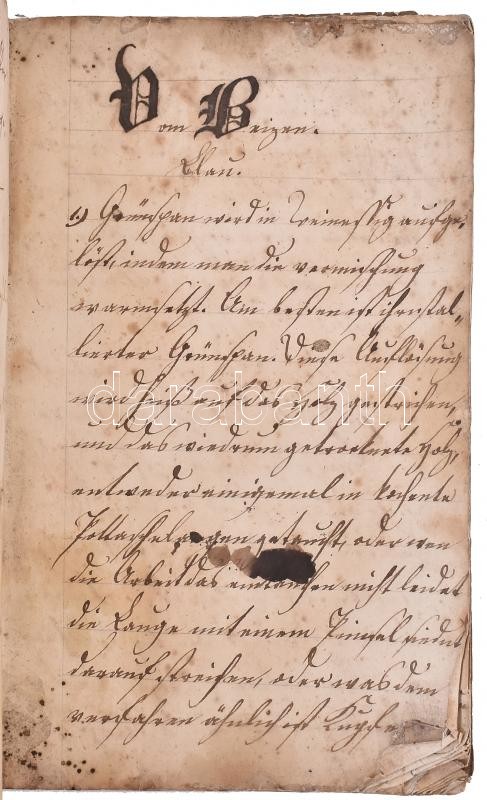 Vom Beizen.
Blau.
1.) Grünspan wird in Weinessig aufge-
löst, indem man die vermischung
warmsetzt. Am besten ist chrystal-
lierter Grünspan. Diese Auflösung
wird heiß auf das Holz gestrichen,
und das wiedrum getrocknete Holz,
entweder einigemal in kochente
Pottaschelaugen getaucht, oder wen
die Arbeit das eintauchen nicht leidet
die Lauge mit einem Pinsel
darauf streichen, oder was dem
verfahren ähnlich ist
darabanth